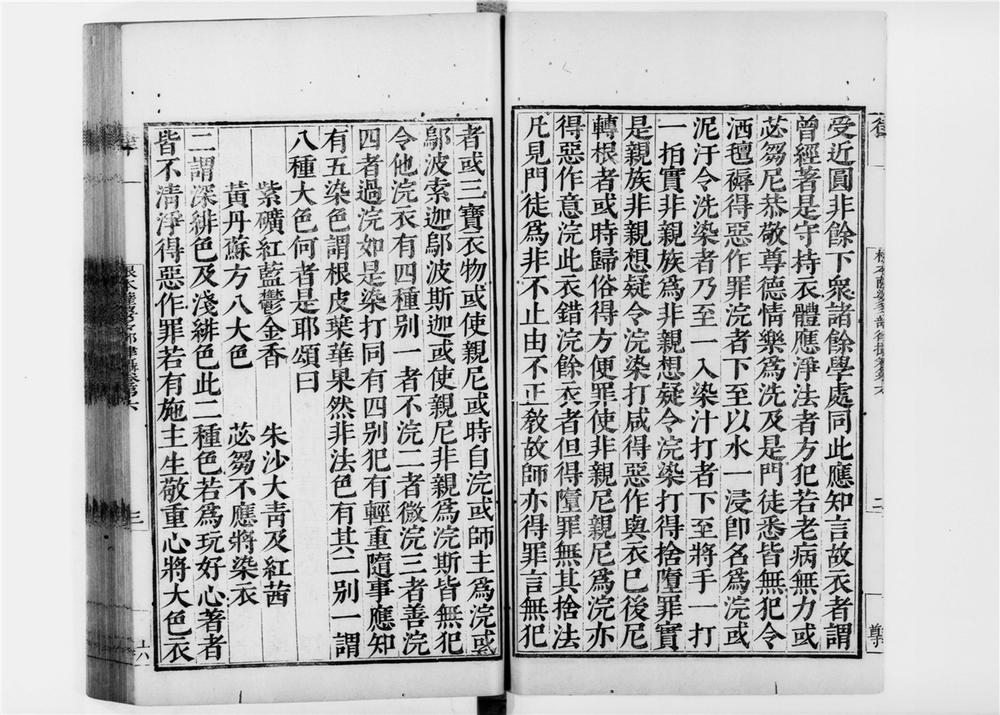 受近圓非餘下衆諸餘學處同此應知言故衣者謂
曾經著是守持衣體應淨法者方犯若老病無力或
苾芻尼恭敬尊德情樂爲洗及是門徒悉皆無犯令
洒氈褥得惡作罪浣者下至以水一浸卽名爲浣或
泥汙令洗染者乃至一入染汁打者下至將手一打
一拍實非親族爲非親想疑令浣染打得捨墮罪實
是親族非親想疑令浣染打咸得惡作與衣已後尼
轉根者或時歸俗得方便罪使非親尼親尼爲浣亦
得惡作意浣此衣錯浣餘衣者但得墮罪無其捨法
凡見門徒爲非不止由不正敎故師亦得罪言無犯
者或三寶衣物或使親尼或時自浣或師主爲浣或
鄔波索迦鄔波斯迦或使親尼非親爲浣斯皆無犯
令他浣衣有四種別一者不浣二者微浣三者善浣
四者過浣如是染打同有四別犯有輕重隨事應知
有五染色謂根皮葉華果然非法色有其二別一謂
八種大色何者是耶頌曰
紫礦紅藍鬱金香 朱沙大青及紅茜
黃丹蘇方八大色 苾芻不應將染衣
二謂深緋色及淺緋色此二種色若爲玩好心著者
皆不清淨得惡作罪若有施主生敬重心將大色衣